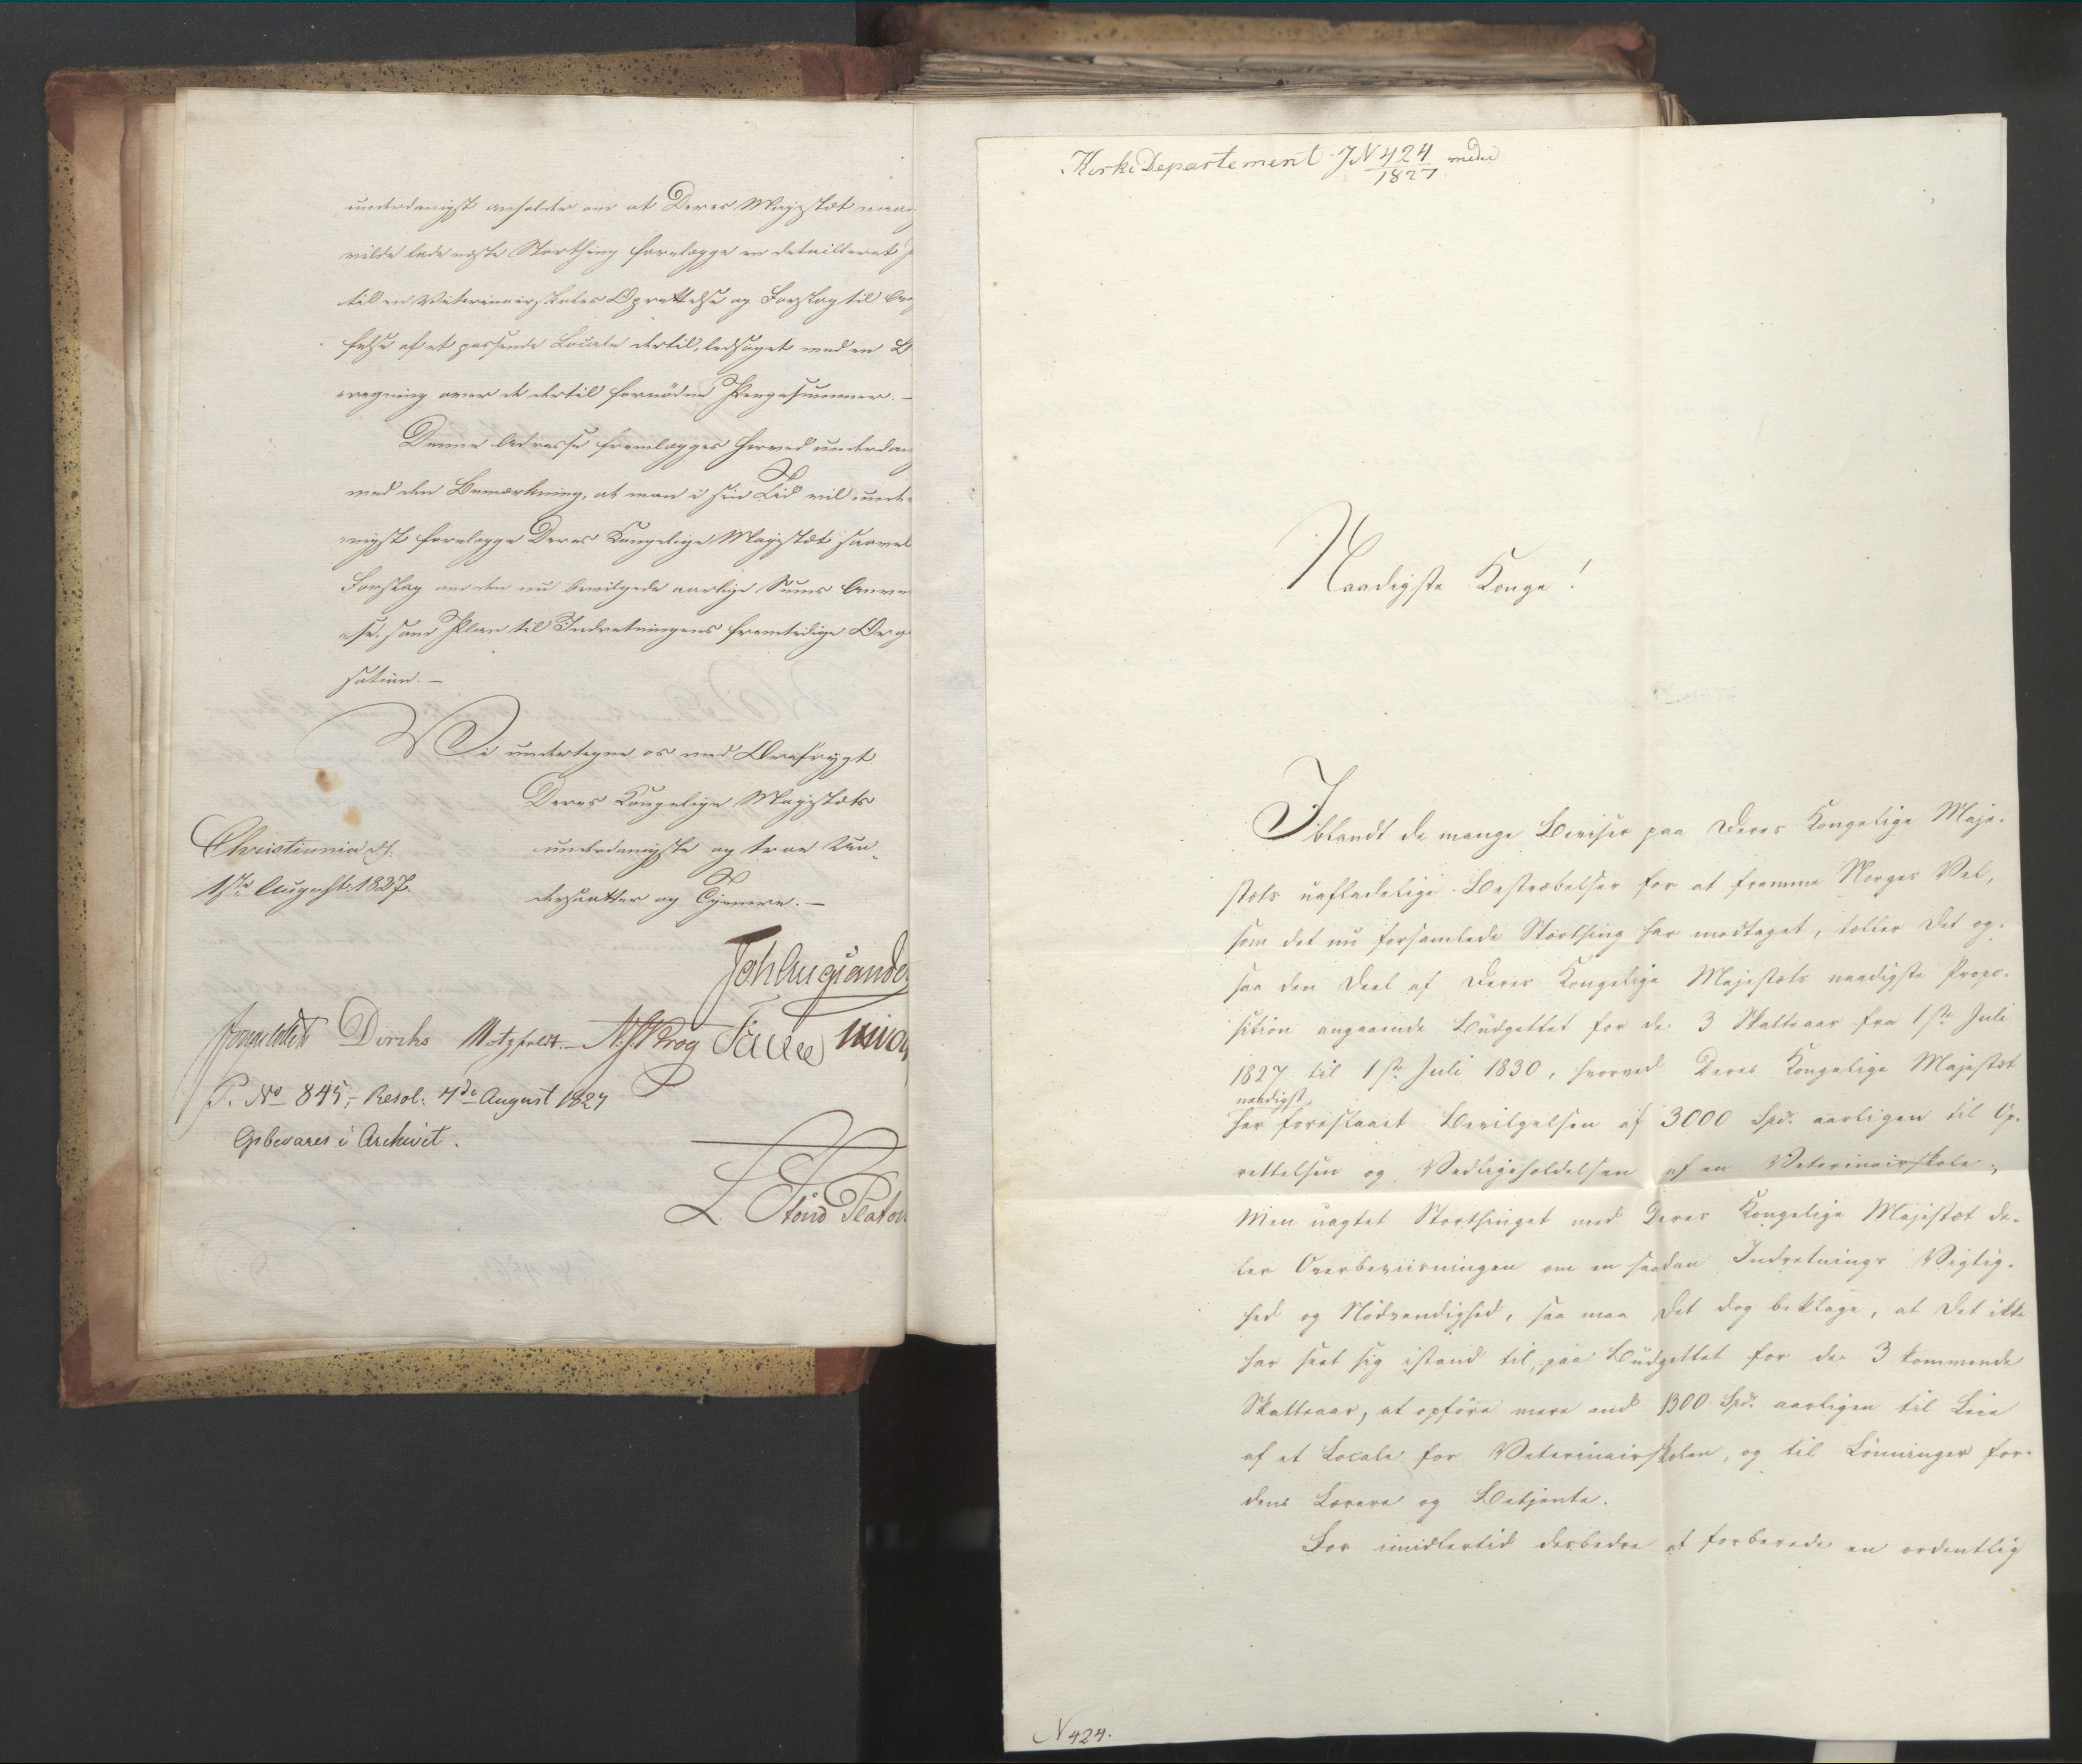 underdanigst anholder om at Deres Majestæt naa
vilde lade næste Storthing forelægge en detailleret
til en Veterinairskoles Oprettelse og Forslag til An
felse af et passende Locale dertil, ledsaget med en B
regning over de dertil fornödne Pengesummer. –
Denne Adresse fremlægges herved underdan
med den Bemærkning, at man i sin Tid vil unde
nigst forelægge Deres Kongelige Majestæt saavel
Forslag om den nu bevilgede aarlige Sums Anven
else, som Plan til Indretningens fremtidige Org
sation. –
Vi undertegne os med Ærefrygt
Deres Kongelige Majestæts
Christiania d.
underdanigste og troe Un-
1ste August 1827.
dersaatter og Tjenere. –
Diriks Motzfeldt. N. J. Krog
P. No 845, Resol. 7de August 1827
Gjbevares i Archivet.
KirkeDepartement JN 424/1827 med
Naadigste Konge!
Iblandt de mange Beviser paa Deres Kongelige Maje-
stæts uafladelige Bestræbelser for at fremme Norges Vel,
som det nu forsamlede Storthing har modtaget, tæller Det og-
saa den Deel af Deres Kongelige Majestæts naadigste Propo-
sition angaaende Büdgettet for de 3 Skatteaar fra 1ste Juli
1827 til 1ste Juli 1830, hvorved Deres Kongelige Majestæt
naadigst
har foreslaaet Bevilgelsen af 3000 Spd. aarligen til Op-
rettelsen og Vedligeholdelsen af en Veterinairskole;
Men uagtet Storthinget med Deres Kongelige Majestæt de-
ler Overbeviisningen om en saadan Indretnings Vigtig-
hed og Nödvendighed, saa maa Det dog beklage, at Det ikke
har seet sig istand til, paa Büdgettet for de 3 kommende
Skatteaar, at opföre mere end 1300 Spd. aarligen til Leie
af et Locale for Veterinairskolen, og til Lönninger for
dens Lærere og Betjente.
For imidlertid desbedre at forberede en ordentlig
N 424.